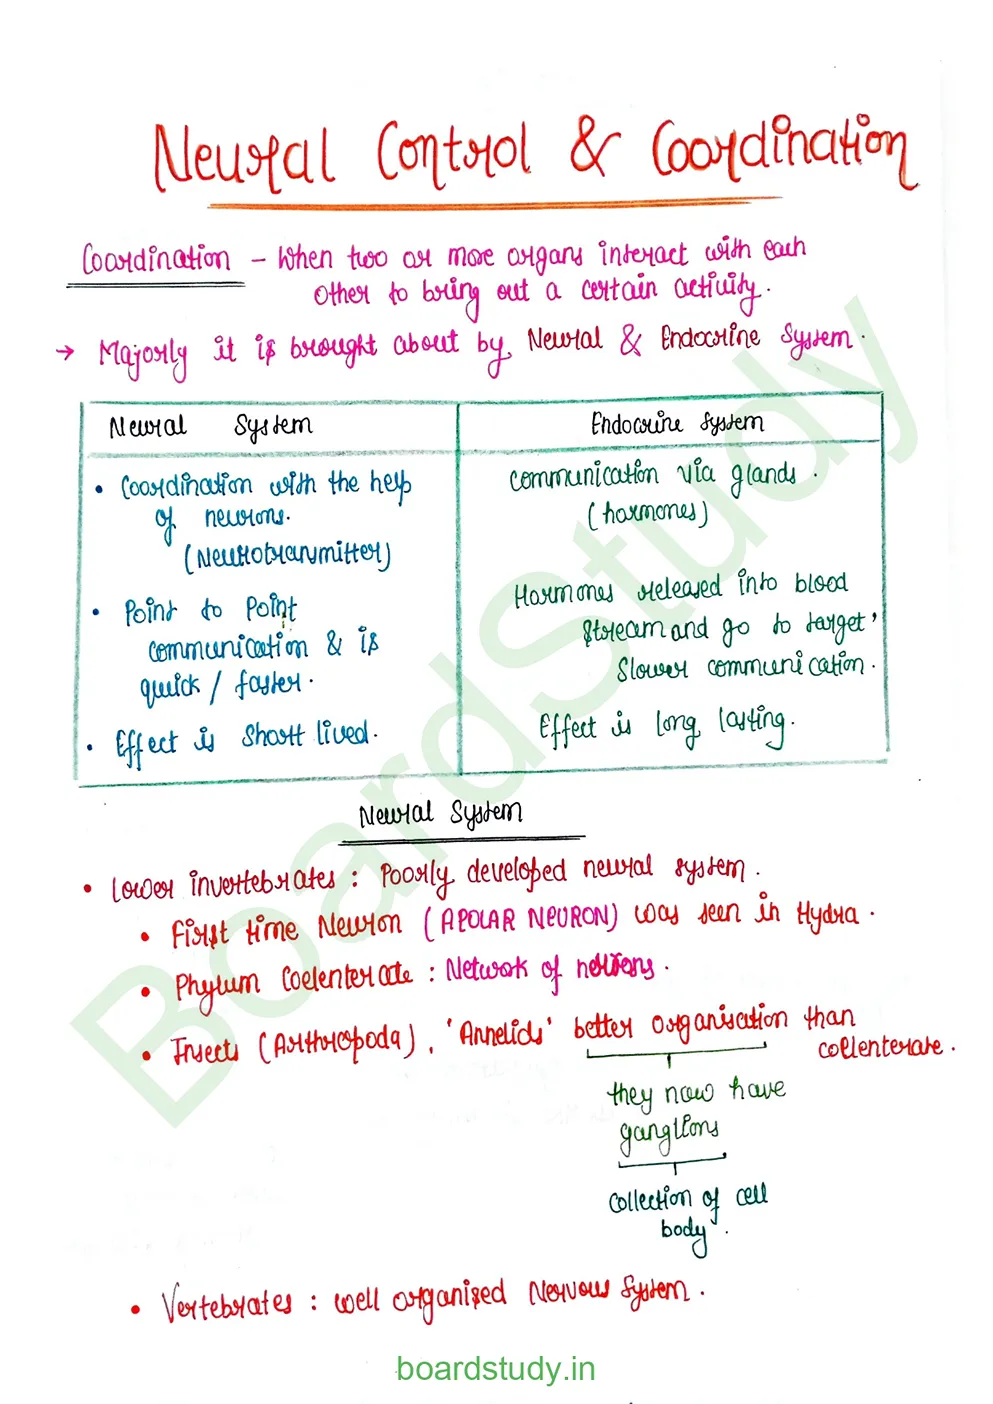 Neural Control & Coordination
Coordination - When two or more organs interact with each
other to bring out a certain activity.
→ Majorly it is brought about by Neural & Endocrine System.
Neural System
Endocrine System
• Coordination with the help
of neurons.
(Neurotransmitter)
communication via glands.
(hormones)
• Point to Point
communication & is
quick / faster.
Hormones released into blood
stream and go to target'
Slower communication.
• Effect is Short lived.
Effect is long lasting.
Neural System
• Lower invertebrates : Poorly developed neural system.
• First time Neuron (APOLAR NEURON) was seen in Hydra.
• Phylum Coelenterate : Network of neurons.
• Insects (Arthropoda), 'Annelids' better organisation than
collenterate.
they now have
ganglions
collection of cell
body'.
• Vertebrates : well organised Nervous System.
BoardStudy
boardstudy.in